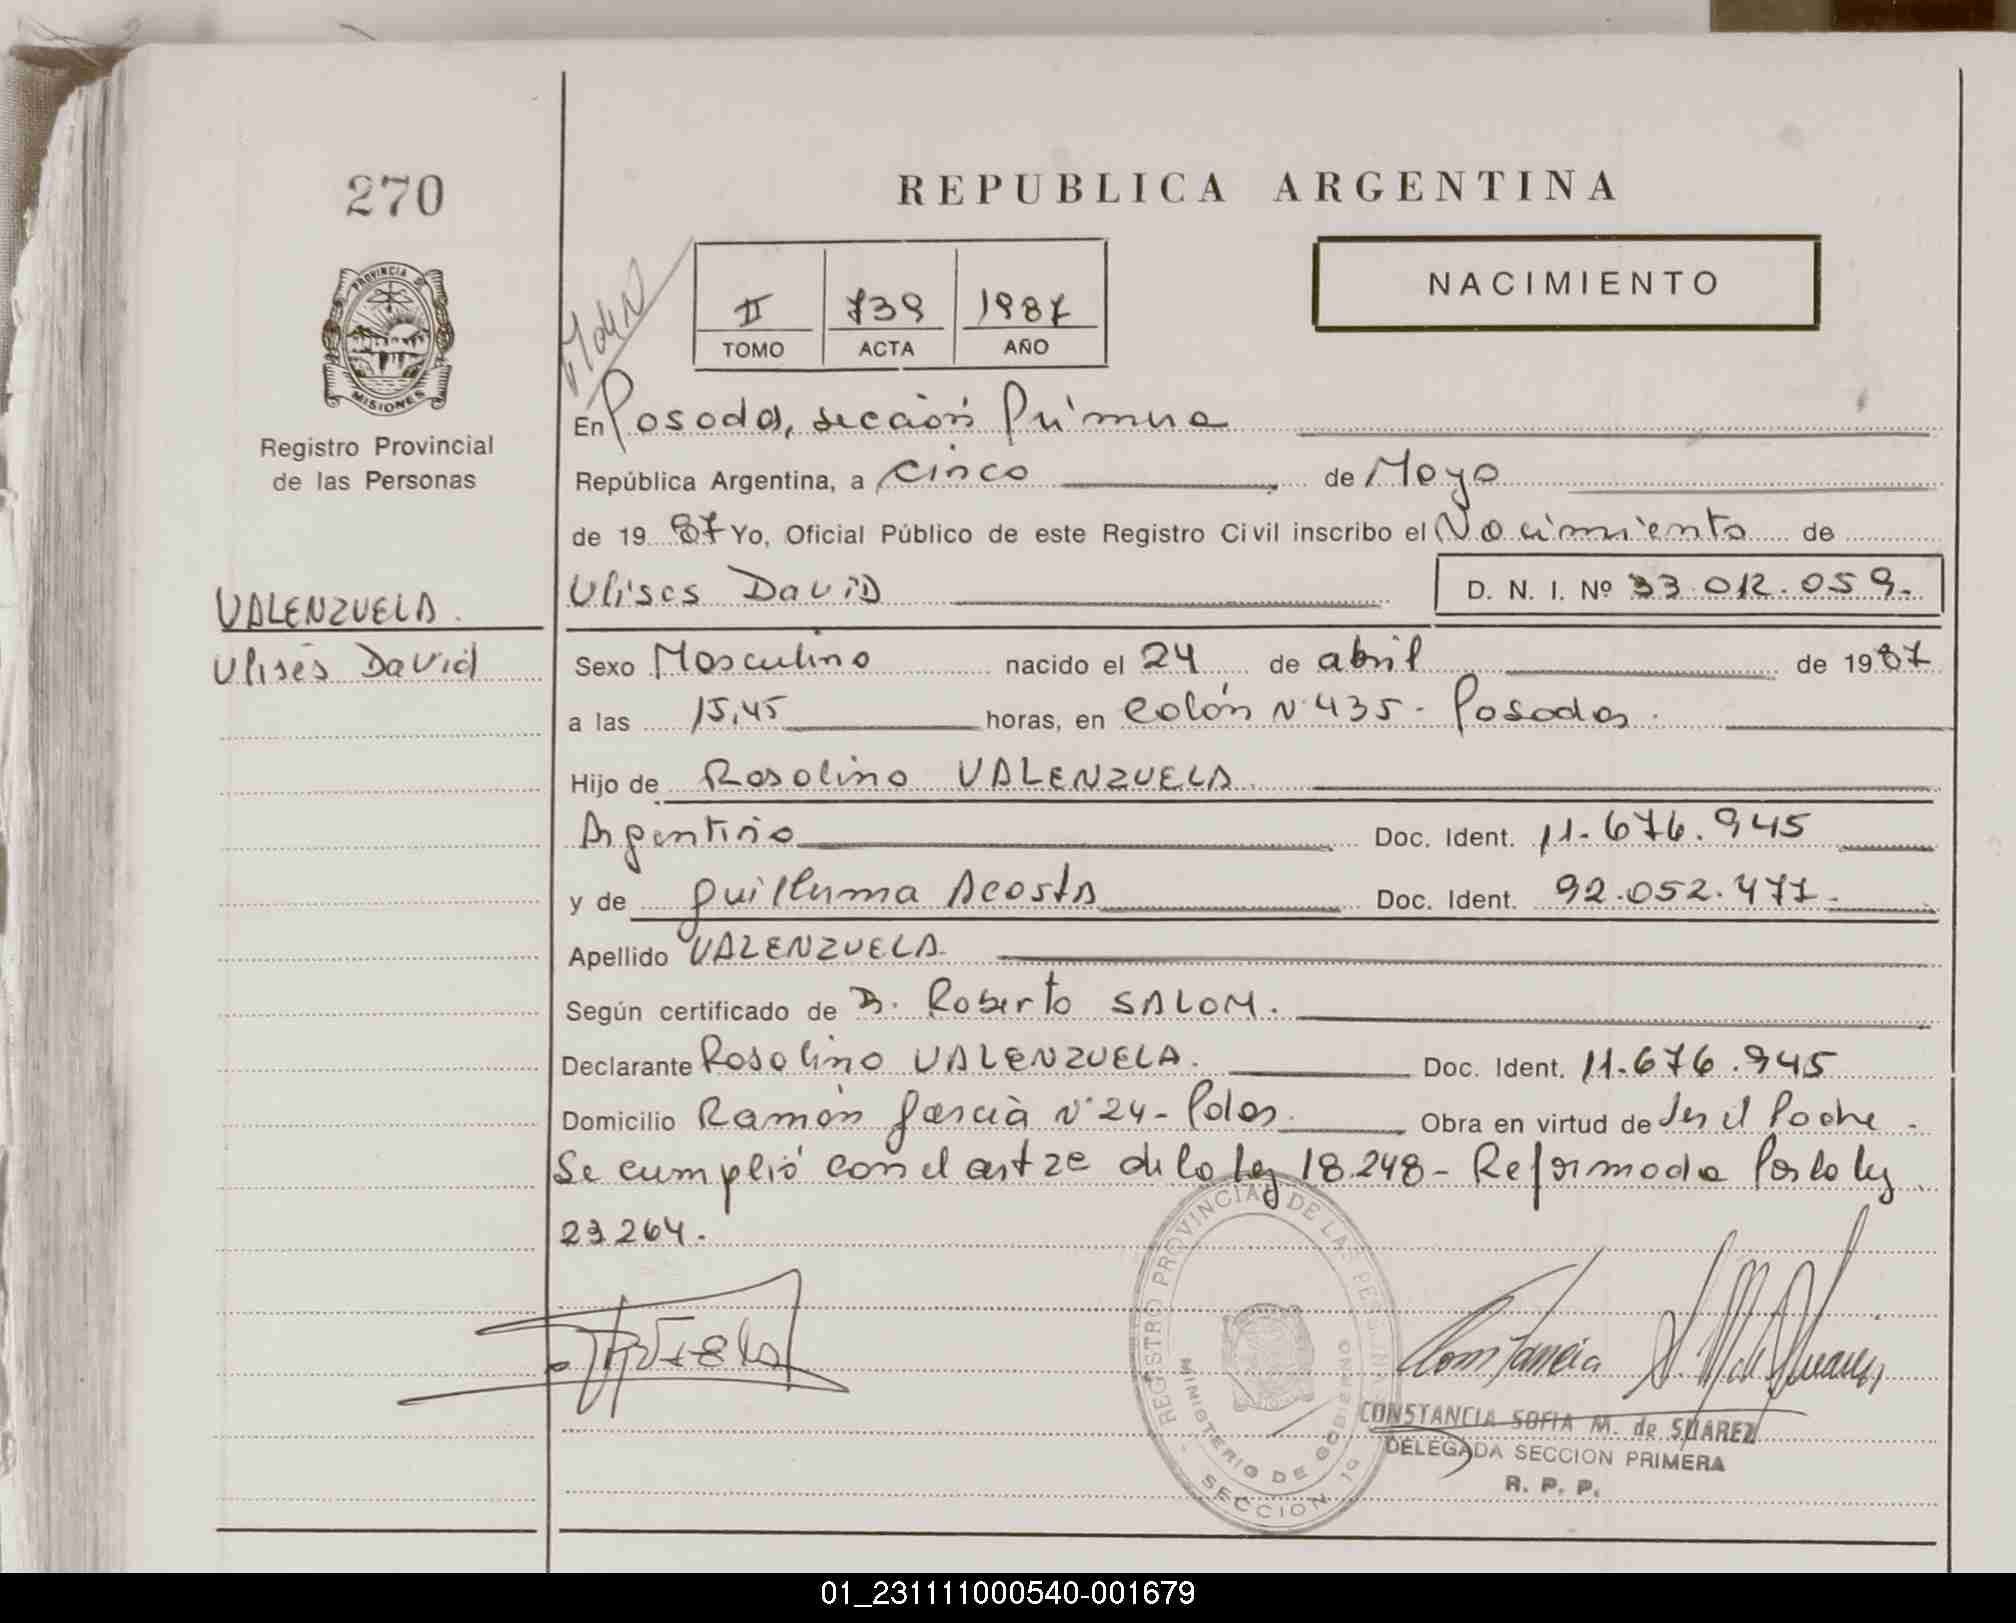 270
REPUBLICA ARGENTINA
NACIMIENTO
II 739 1987
TOMO ACTA AÑO
PROVINCIA DE
MISIONES
Registro Provincial
de las Personas
En Posadas, sección Primera
República Argentina, a cinco de Mayo
de 1987 Yo, Oficial Público de este Registro Civil inscribo el Nacimiento de
VALENZUELA.
Ulises David
Ulises David D. N. I. Nº 33.012.059.
Sexo Masculino nacido el 24 de abril de 1987
a las 15,45 horas, en Colón Nº 435 - Posadas.
Hijo de Rosolino VALENZUELA.
Argentino Doc. Ident. 11.676.945
y de Guillerma Acosta Doc. Ident. 92.052.477.
Apellido VALENZUELA.
Según certificado de D. Roberto SALOM.
Declarante Rosolino VALENZUELA. Doc. Ident. 11.676.945
Domicilio Ramón García Nº 24 - Pdas. Obra en virtud de ser el Padre.
Se cumplió con el art 2e de la ley 18.248 - Reformada Por la ley
23.264.
REGISTRO PROVINCIAL DE LAS PERSONAS
MINISTERIO DE GOBIERNO
SECCION 1ª
Constancia S. M. de Suarez
CONSTANCIA SOFIA M. de SUAREZ
DELEGADA SECCION PRIMERA
R. P. P.
01_231111000540-001679